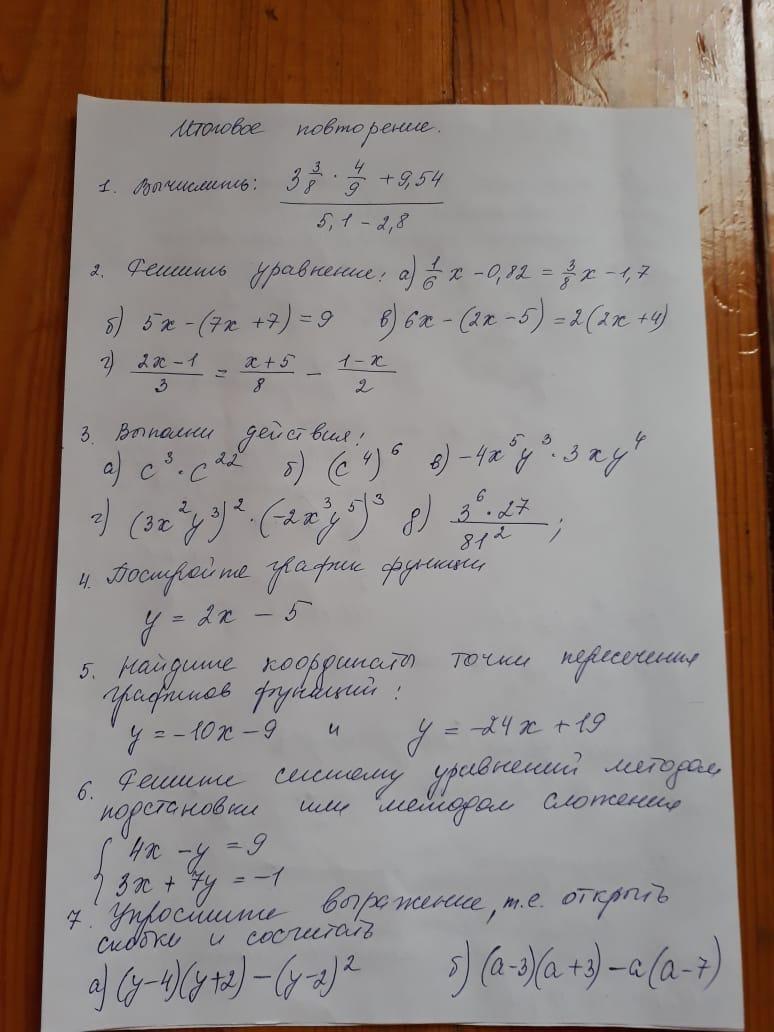 Итоговое повторение.
1. Вычислить: (3 3/8 · 4/9 + 9,54) / (5,1 - 2,8)
2. Решить уравнение: а) 1/6 x - 0,82 = 3/8 x - 1,7
б) 5x - (7x + 7) = 9 в) 6x - (2x - 5) = 2(2x + 4)
г) (2x - 1)/3 = (x + 5)/8 - (1 - x)/2
3. Выполни действия:
а) c³ · c²² б) (c⁴)⁶ в) -4x⁵y³ · 3xy⁴
г) (3x²y³)² · (-2x³y⁵)³ д) (3⁶ · 27) / 81² ;
4. Постройте график функции
y = 2x - 5
5. Найдите координаты точки пересечения
графиков функций:
y = -10x - 9 и y = -24x + 19
6. Решите систему уравнений методом
подстановки или методом сложения
{ 4x - y = 9
3x + 7y = -1
7. Упростите выражение, т.е. открыть
скобки и сосчитать
а) (y-4)(y+2) - (y-2)² б) (a-3)(a+3) - a(a-7)